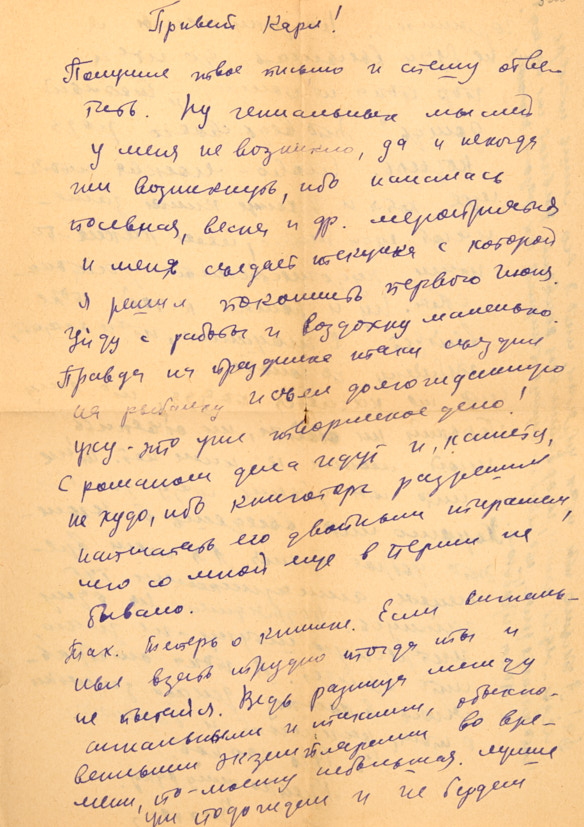 Привет Карл!
Получил твое письмо и спешу отве-
тить. Ну гениальных мыслей
у меня не возникло, да и некогда
им возникнуть, ибо началась
посевная, весна и др. мероприятия
и меня съедает текучка с которой
я решил покончить первого июня.
Уйду с работы и воздохну маленько.
Правда на празднике таки съездил
на рыбалку и съел долгожданную
уху - это уже творческое дело!
С романом дела идут и, кажется,
не худо, ибо книготорг разрешил
напечатать его двойным тиражем,
чего со мной еще в Перми не
бывало.
Так. Теперь о книжке. Если сигналь-
ные взять трудно тогда ты и
не пытайся. Ведь разница между
сигнальными и такими, обыкно-
венными экземплярами во вре-
мени, по-моему небольшая. Лучше
уж подождем и не будем